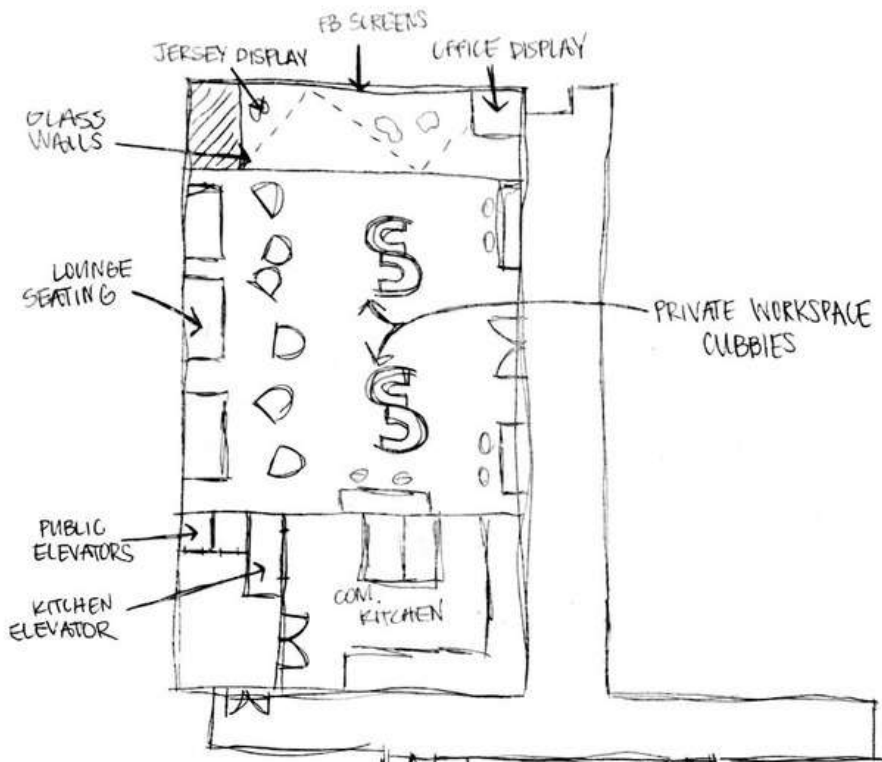 FB SCREENS
JERSEY DISPLAY
OFFICE DISPLAY
GLASS
WALLS
LOUNGE
SEATING
PRIVATE WORKSPACE
CUBBIES
PUBLIC
ELEVATORS
KITCHEN
ELEVATOR
COM.
KITCHEN